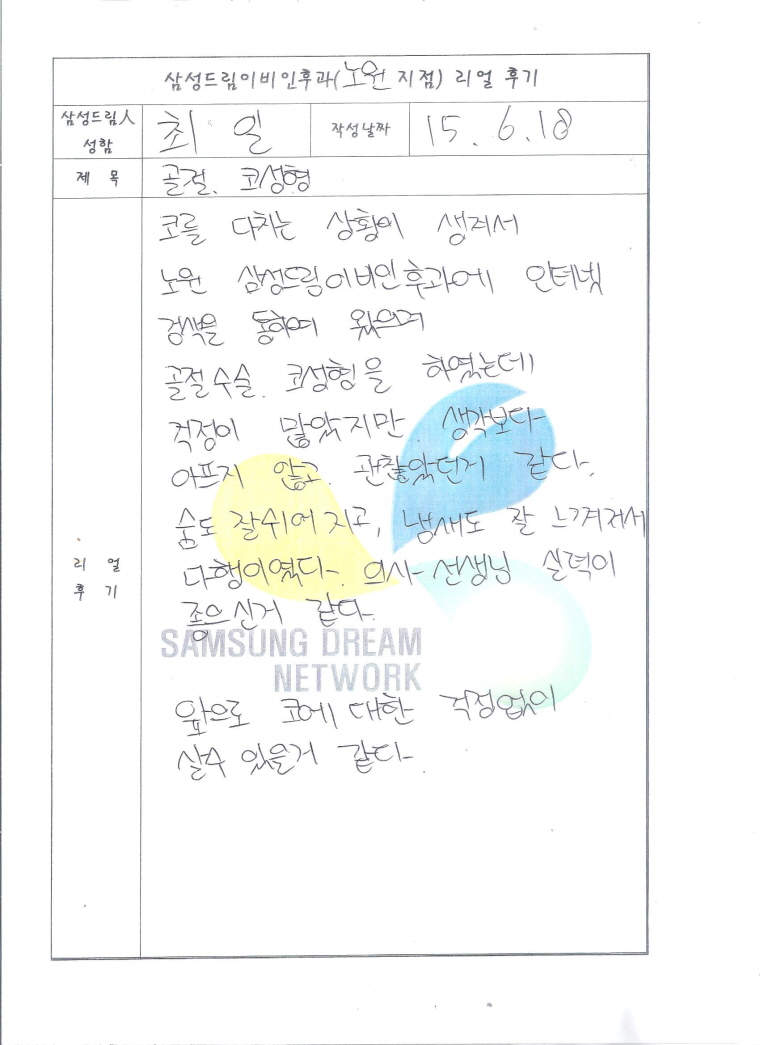 삼성드림이비인후과(노원 지점) 리얼 후기
삼성드림人 성함
최 일
작성날짜
15. 6. 18
제 목
골절. 코성형
리 얼 후 기
코를 다치는 상황이 생겨서
노원 삼성드림이비인후과에 인터넷
검색을 통하여 왔으며
골절수술. 코성형을 하였는데
걱정이 많았지만 생각보다
아프지 않고 괜찮았던거 같다.
숨도 잘쉬어지고, 냄새도 잘 느껴져서
다행이였다. 의사선생님 실력이
좋으신거 같다.
SAMSUNG DREAM
NETWORK
앞으로 코에 대한 걱정없이
살수 있을거 같다.